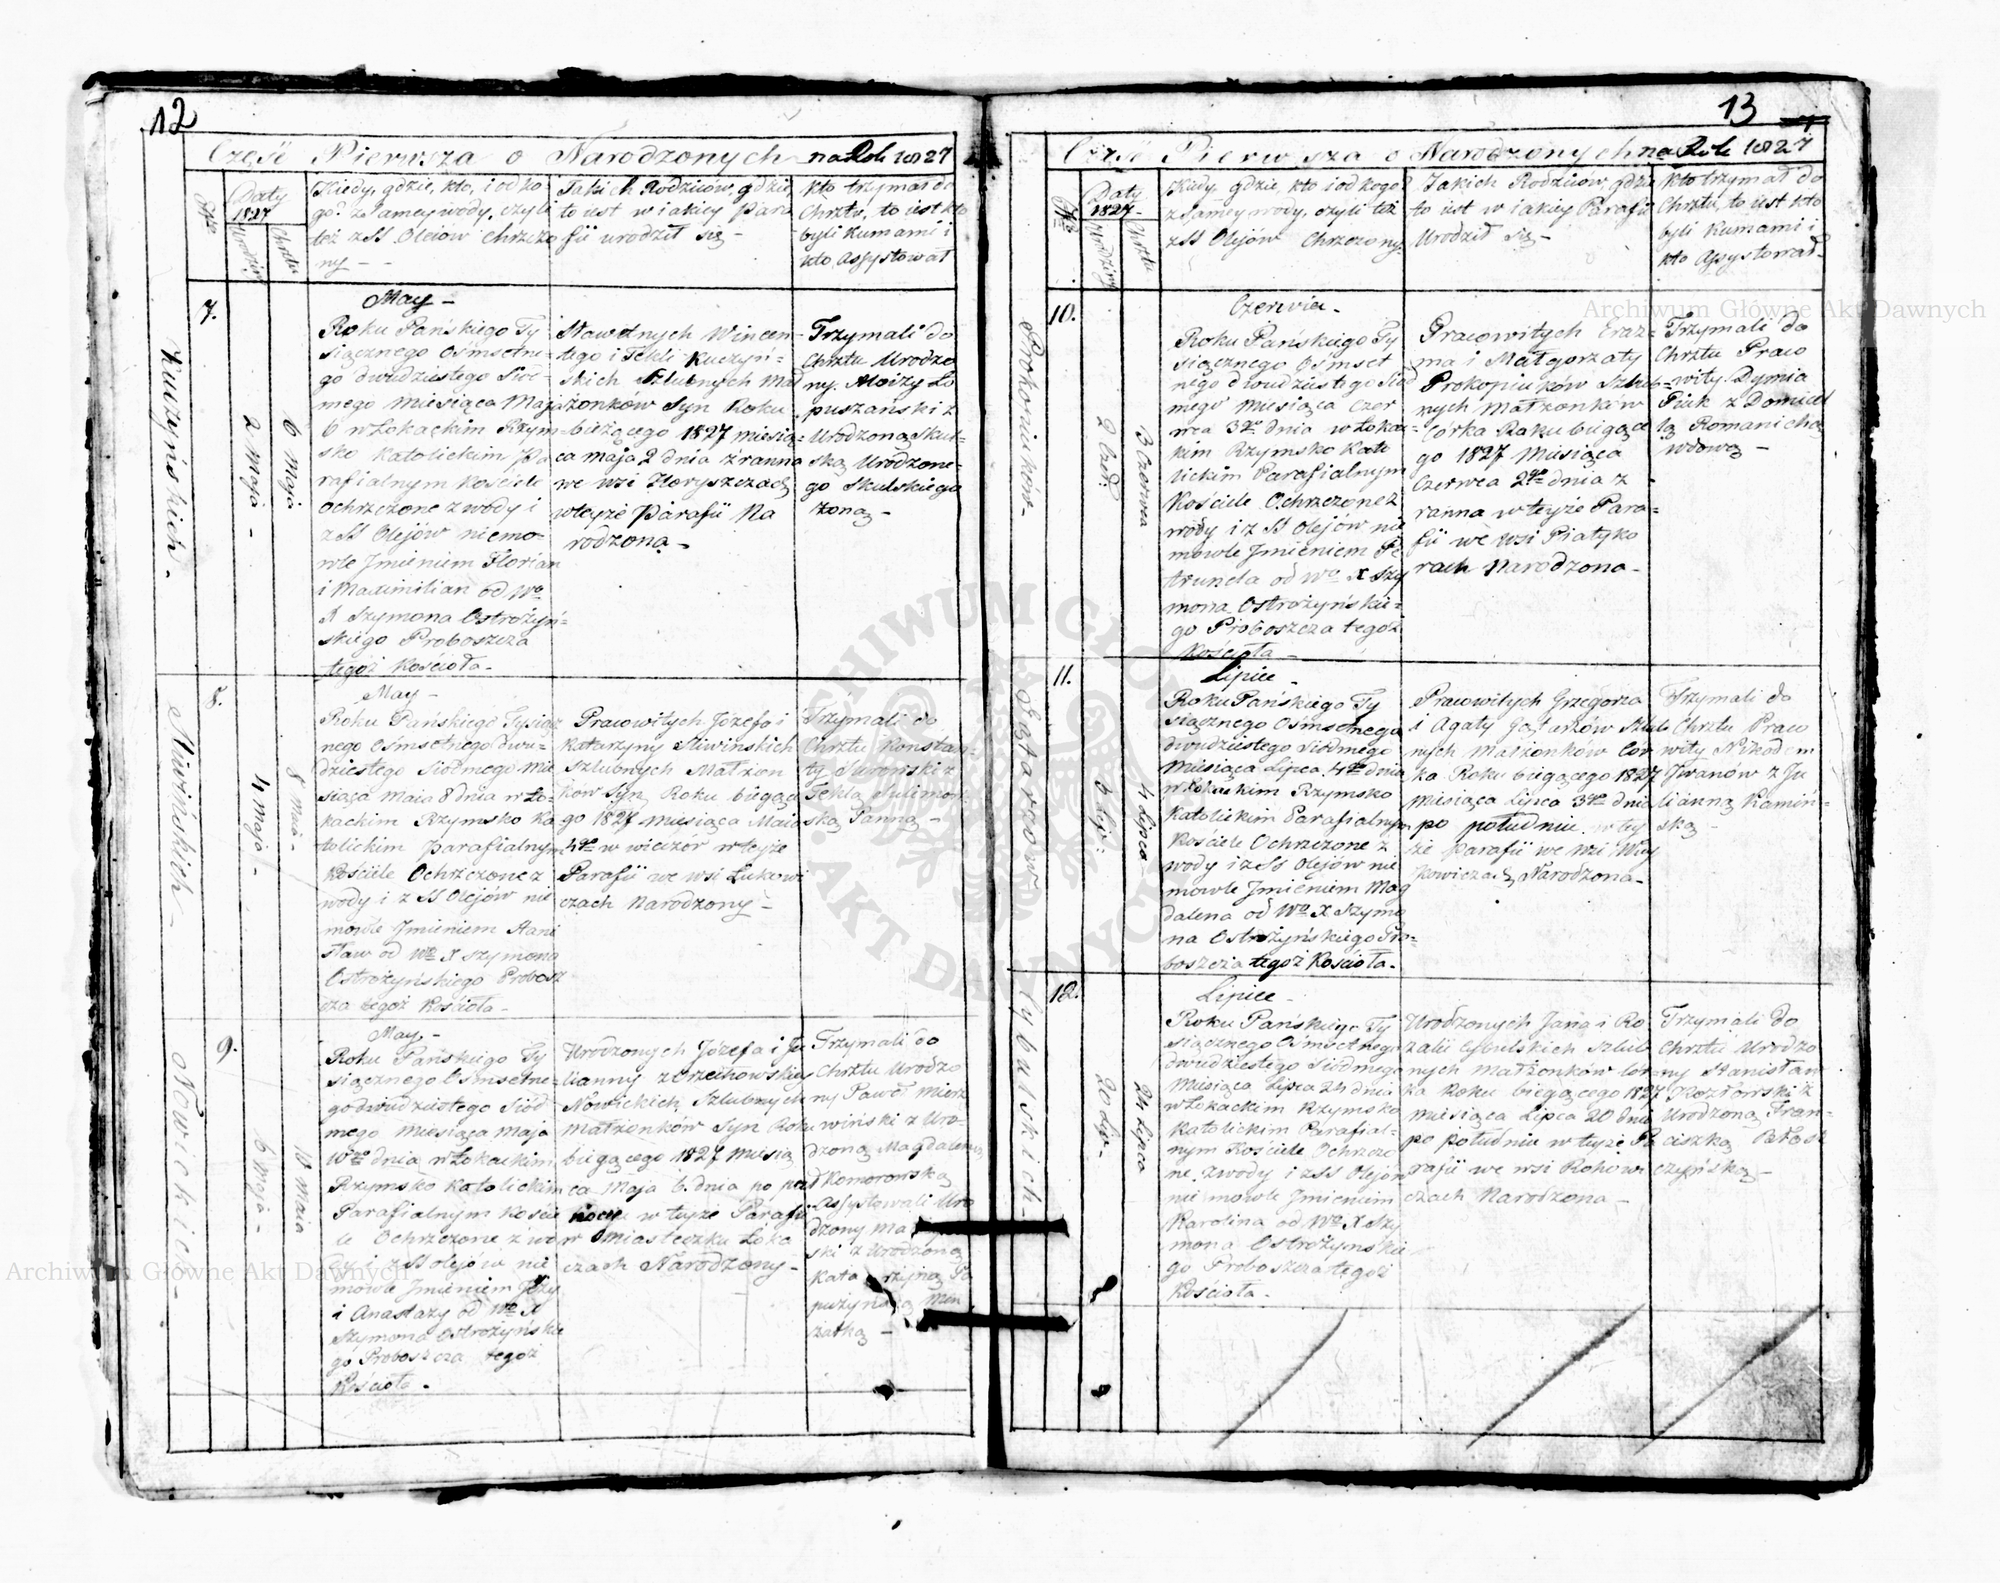 12
Część Pierwsza o Narodzonych na Rok 1827
Nro
Daty
1827
Urodzin
Chrztu
Kiedy, gdzie, kto, i od ko
go? z samey wody, czyli
też z SS Olejów chrzczo
ny -
Jakich Rodziców, gdzie,
to iest w iakiey Para
fii urodził się -
Kto trzymał do
Chrztu, to iest kto
byli Kumami i
kto Assystował
Kuczyńskich.
7.
2 Maja -
6 Maja
May -
Roku Pańskiego Ty
siącznego Ośmsetne-
go dwudziestego Siód-
mego Miesiąca Maja
6 w Łokackim Rzym-
sko Katolickim Pa
rafialnym Kościele
Ochrzczone z wody i
z SS Olejów niemo-
wle Jmieniem Florian
i Maximilian od Wo
X Szymona Ostrożyń-
skiego Proboszcza
tegoż Kościoła -
Sławetnych Wincen-
tego i Tekli Kuczyń-
skich Szlubnych Mał
żonków Syn Roku
bieżącego 1827 miesią-
ca maja 2 dnia z ranna
we wsi Horyszczach
w teyże Parafii Na
rodzona -
Trzymali do
Chrztu Urodzo
ny Aloizy Ło
puszański z
Urodzoną Skul-
ską Urodzone-
go Skulskiego
żoną -
Sliwińskich -
8.
4 Maja -
8 Maia -
May -
Roku Pańskiego Tysiąc
nego Ośmsetnego dwu-
dziestego Siódmego Mie
siąca Maia 8 dnia w Ło-
kackim Rzymsko Ka
tolickim Parafialnym
Kościele Ochrzczone z
wody i z SS Olejów nie
mowle Jmieniem Stani
sław od Wo X Szymona
Ostrożyńskiego Probosz
cza tegoż Kościoła -
Pracowitych Józefa i
Katarzyny Sliwińskich
Szlubnych Małżon
ków Syn Roku bieżące
go 1827 Miesiąca Maia
4go w wieczor w teyże
Parafii we wsi Łukowi
czach Narodzony -
Trzymali do
Chrztu Konstan-
ty Surowski z
Teklą Sulimow
ską Panną -
Nowickich -
9.
6 Maja -
10 Maia
May -
Roku Pańskiego Ty
siącznego Ośmsetne-
go dwudziestego Siód
mego Miesiąca Maja
10go dnia w Łokackim
Rzymsko Katolickim
Parafialnym Koście
le Ochrzczone z wo
dy i z SS olejów nie
mowle Jmieniem Jerzy
i Anastazy od Wo X
Szymona Ostrożyńskie
go Proboszcza tegoż
Kościoła -
Urodzonych Józefa i Ju
lianny z Orzechowskich
Nowickich, Szlubnych
Małżonków Syn Roku
bieżącego 1827 Miesią
ca Maja 6 dnia po pół
nocy w teyże Parafii
w Miasteczku Łoka
czach Narodzony -
Trzymali do
Chrztu Urodzo
ny Paweł Mierz
wiński z Uro-
dzoną Magdaleną
Komorowską
Assystowali Uro
dzony Ma
ski z Urodzoną
Katarzyną
13
Część Pierwsza o Narodzonych na Rok 1827
Nro
Daty
1827
Urodziny
Chrztu
Kiedy, gdzie, kto i od kogo?
z samey wody, czyli też
z SS Olejów Chrzczony
Jakich Rodziców, gdzie
to iest w iakiey Parafii
Urodził się -
Kto trzymał do
Chrztu, to iest kto
byli Kumami i
kto Assystował -
10.
3 Czerwca
Czerwca -
Roku Pańskiego Ty
siącznego Ośmset
nego dwudziestego Siód
mego Miesiąca Czer
wca 3go dnia w Łokac-
kim Rzymsko Kato
lickim Parafialnym
Kościele Ochrzczone z
wody i z SS Olejów nie
mowle Jmieniem Pe
trunela od Wo X Szy
mona Ostrożyńskie-
go Proboszcza tegoż
Kościoła -
Pracowitych Eraz-
ma i Małgorzaty
Prokopiuków Szlub-
nych Małżonków
Córka Roku bieżące
go 1827 Miesiąca
Czerwca 2go dnia z
ranna w teyże Para-
fii we wsi Piatyko
rach Narodzona -
Trzymali do
Chrztu Praco
wity Dymia
Piuk z Domicel
lą Romanichą
wdową -
Gątarzow
11.
3 Lip:
4 Lipca -
Lipiec -
Roku Pańskiego Ty
siącznego Ośmsetnego
dwudziestego Siódmego
Miesiąca Lipca 4go dnia
w Łokackim Rzymsko
Katolickim Parafialnym
Kościele Ochrzczone z
wody i z SS Olejów nie
mowle Jmieniem Mag
dalena od Wo X Szymo
na Ostrożyńskiego Pro-
boszcza tegoż Kościoła -
Pracowitych Grzegorza
i Agaty Gątarzów Szlub
nych Małżonków Cór
ka Roku bieżącego 1827
Miesiąca Lipca 3go dnia
po południu w tey
że Parafii we wsi
Narodzona -
Trzymali do
Chrztu Praco
wity Nikodem
Jwanów z Ju
lianną Kamiń-
ską -
Cybulskich -
12.
20 Lip: -
24 Lipca
Lipiec -
Roku Pańskiego Ty
siącznego Ośmsetnego
dwudziestego Siódmego
Miesiąca Lipca 24 dnia
w Łokackim Rzymsko
Katolickim Parafial-
nym Kościele Ochrzczo
ne z wody i z SS Olejów
nie mowle Jmieniem
Karolina od Wo X Szy
mona Ostrożyńskie
go Proboszcza tegoż
Kościoła -
Urodzonych Jana i Ro
zalii Cybulskich Szlub
nych Małżonków Cor-
ka Roku bieżącego 1827
Miesiąca Lipca 20 dnia
po południu w teyże Pa
rafii we wsi Rohowi
czach Narodzona -
Trzymali do
Chrztu Urodzo
ny Stanisław
Kozłowski z
Urodzoną Fran-
ciszką
Archiwum Główne Akt Dawnych
Archiwum Główne Akt Dawnych